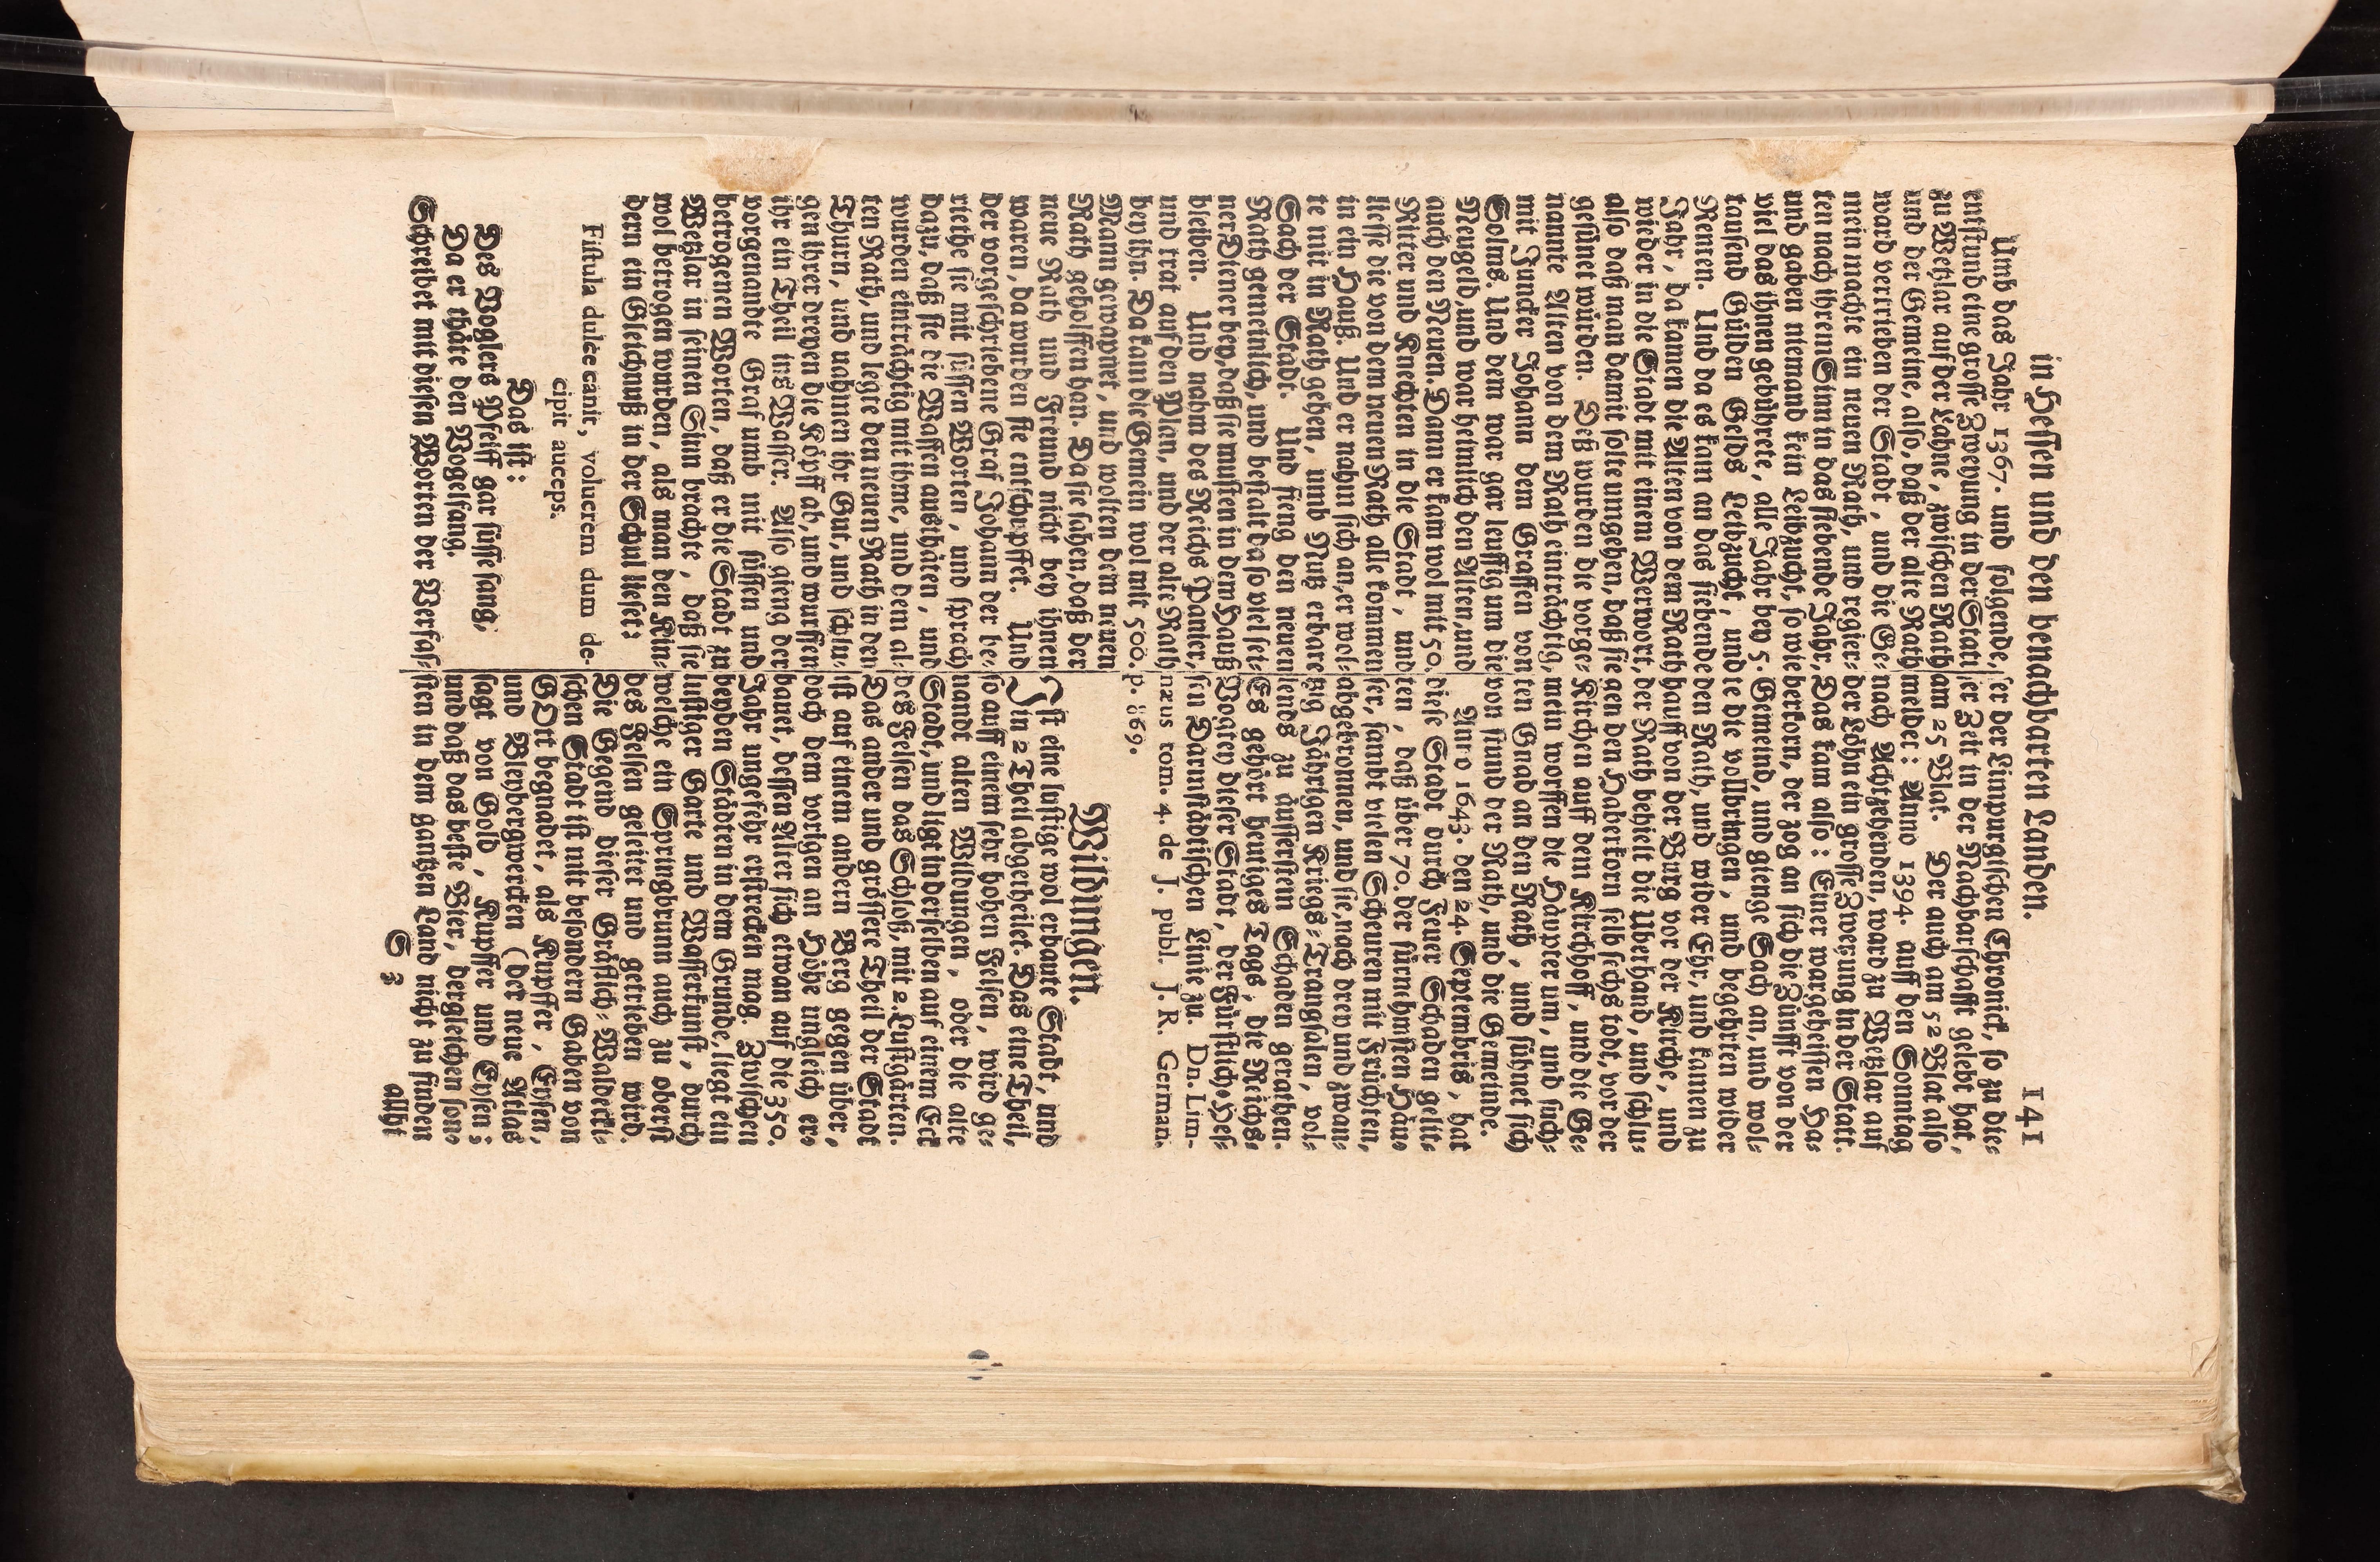 in Hessen und den benachbarten Landen. 141
Und das Jahr 1367. und folgende,
entstund eine grosse Zweyung in der Statt
zu Wetzlar auf der Lahne, zwischen Rath
und der Gemeine, also, daß der alte Rath
ward vertrieben der Stadt, und die Ge-
mein machte ein neuen Rath, und regier-
ten nach ihrem Sinn in das siebende Jahr,
und gaben niemand kein Leibzucht, so wie
viel das ihnen gebührete, alle Jahr bey 5.
tausend Gülden Gelds Leibzucht, und die
Renten. Und da es kam an das siebende
Jahr, da kamen die Alten von dem Rath
wieder in die Stadt mit einem Verwort,
also daß man damit solte umgehen, daß sie
gesünet würden. Deß wurden die vorge-
nannte Alten von dem Rath einträchtig,
mit Juncker Johann dem Graffen von
Solms. Und dem war gar leuffig um die
Neugeld, und war heimlich den Alten, und
auch den Neuen. Dann er kam wol mit 50.
Ritter und Knechten in die Stadt, und
liesse die von dem neuen Rath alle kommen
in ein Hauß. Und er nahm sich an, er wol-
te mit in Rath geben, umb Nutz erbare
Sach der Stadt. Und fieng den neuen
Rath gemeinlich, und bestalt da so viel sei-
ner Diener bey, daß sie musten in dem Hauß
bleiben. Und nahm des Reichs Panier,
und trat auf den Plan, und der alte Rath
bey ihn. Da kam die Gemein wol mit 500.
Mann gewapnet, und wolten dem neuen
Rath geholffen han. Da sie sahen, daß der
neue Rath und Freund nicht bey ihnen
waren, da wurden sie entschupffet. Und
der vorgeschriebene Graf Johann der be-
riethe sie mit süssen Worten, und sprach
dazu, daß sie die Waffen außthäten, und
wurden einträchtig mit ihme, und dem al-
ten Rath, und legte den neuen Rath in den
Thurn, und nahmen ihr Gut, und schlu-
gen ihrer dreyen die Köpff ab, und wurffen
ihr ein Theil ins Wasser. Also gieng der
vorgenandte Graf umb mit süssen und
betrogenen Worten, daß er die Stadt zu
Wetzlar in seinen Sinn brachte, daß sie
wol betrogen wurden, als man den Kin-
dern ein Gleichnuß in der Schul lieset:
Fistula dulce canit, volucrem dum de-
cipit auceps.
Das ist:
Des Voglers Pfeiff gar süsse sang,
Da er thäte den Vogelfang.
Schreibet mit diesen Worten der Verfas-
ser der Limpurgischen Chronick, so zu die-
ser Zeit in der Nachbarschafft gelebt hat,
am 25 Blat. Der auch am 52 Blat also
meldet: Anno 1394. auff den Sonntag
nach Achtzehenden, ward zu Wetzlar auf
der Löhn ein grosse Zweyung in der Statt.
Das kam also: Einer war geheissen Ha-
berkorn, der zog an sich die Zünfft von der
Gemeind, und gienge Sach an, und wol-
ten die vollbringen, und begehrten wider
den Rath, und wider Ehr, und kamen zu
hauff von der Burg vor der Kirche, und
der Rath behielt die Uberhand, und schlu-
gen den Haberkorn selb sechs todt, vor der
Kirchen auff dem Kirchhoff, und die Ge-
mein worffen die Häupter um, und such-
ten Gnad an den Rath, und sühnet sich
von stund der Rath, und die Gemeinde.
Anno 1643. den 24 Septembris, hat
diese Stadt durch Feuer Schaden gelit-
ten, daß über 70. der fürnehmsten Häu-
ser, sambt vielen Scheuren mit Früchten,
abgebronnen, und sie, nach drey und zwan-
tzig Jährigen Kriegs-Trangsalen, vol-
lends zu äusserstem Schaden gerathen.
Es gehört heutiges Tags, die Reichs-
Vogtey dieser Stadt, der Fürstlich-Hes-
sen Darmstädtischen Linie zu. Dn. Lim-
næus tom. 4. de J. publ. J. R. German.
p. 869.
Wildungen.
Ist eine lustige wol erbaute Stadt, und
in 2 Theil abgetheilet. Das eine Theil,
so auff einem sehr hohen Felsen, wird ge-
nandt alten Wildungen, oder die alte
Stadt, und ligt in derselben auf einem Eck
des Felsen das Schloß, mit 2. Lustgärten.
Das ander und grössere Theil der Stadt
ist auf einem andern Berg gegen über,
doch dem vorigen an Höhe ungleich er-
bauet, dessen Alter sich etwan auf die 350.
Jahr ungefehr erstrecken mag. Zwischen
beyden Städten in dem Grunde, liegt ein
lustiger Garte und Wasserkunst, durch
welche ein Springbrunn auch zu oberst
des Felsen geleitet und getrieben wird.
Die Gegend dieser Gräflich-Waldecki-
schen Stadt ist mit besondern Gaben von
GOtt begnadet, als Kupffer, Eysen,
und Bleybergwercken (der neue Atlas
sagt von Gold, Kupffer und Eysen;
und daß das beste Bier, dergleichen son-
sten in dem gantzen Land nicht zu finden
S 3
allhi